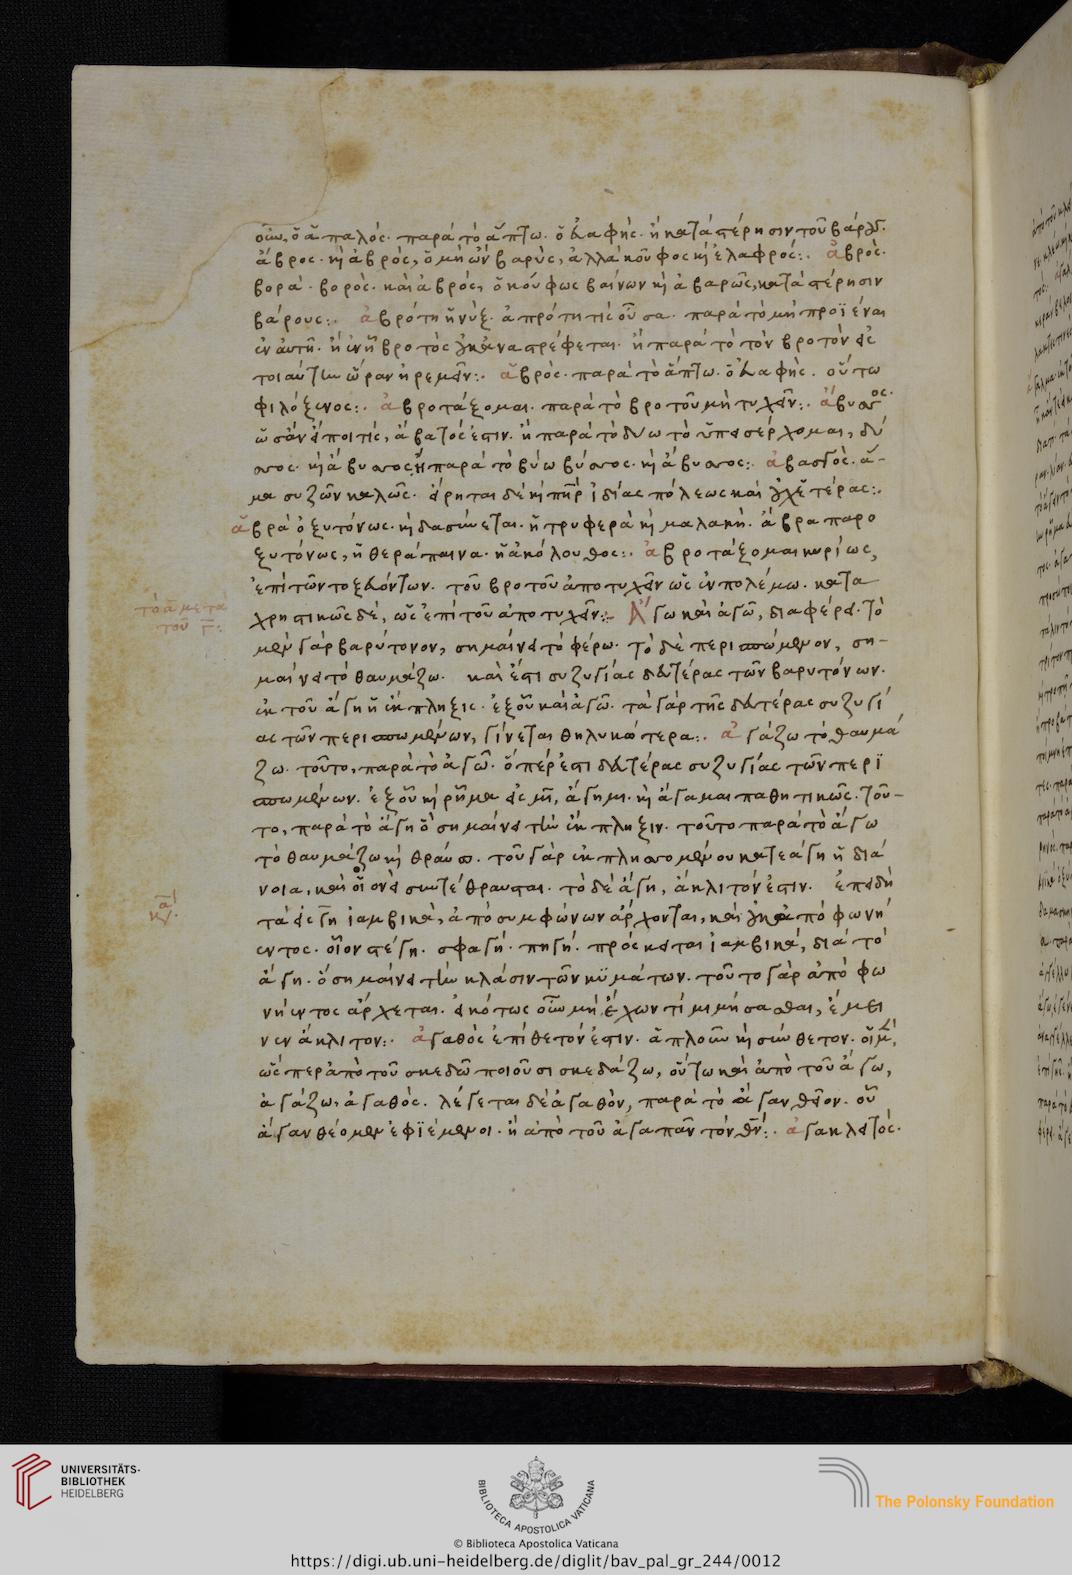 οὖν, ὁ ἁπαλός· παρὰ τὸ ἅπτω. ὁ εὐαφής· ἢ κατὰ στέρησιν τοῦ βάρους·
ἄβρος· καὶ ἁβρὸς, ὁ μὴ ὢν βαρὺς, ἀλλὰ κοῦφος καὶ ἐλαφρός:. ἁβρὸς·
βορά· βορὸς· καὶ ἁβρός, ὁ κούφως βαίνων καὶ ἀβαρῶς, κατὰ στέρησιν
βάρους:. ἀβρότη ἡ νύξ· ἀπρότη τίς οὖσα· παρὰ τὸ μὴ προϊέναι
ἐν αὐτῆ· ἢ ἐν ᾗ βροτὸς οὐκ ἀναστρέφεται· ἢ παρὰ τὸ τὸν βροτὸν εἰς
τοιαύτην ὥραν ἠρεμεῖν:. ἁβρὸς· παρὰ τὸ ἅπτω· ὁ εὐαφὴς. οὕτω
φιλόξενος:. ἀβροτάξομαι· παρὰ τὸ βροτοῦ μὴ τυχεῖν:. ἄβυσσος·
ὡσὰν εἴποι τίς, ἄβατός ἐστιν· ἢ παρὰ τὸ δύω τὸ ὑπεισέρχομαι, δύ
σσος· καὶ ἄβυσσος ἢ παρὰ τὸ βύω βύσσος· καὶ ἄβυσσος:.
μα συζῶν καλῶς· εἴρηται δὲ καὶ πατὴρ ἰδίας πόλεως καὶ οὐχ ἑτέρας:.
ἁβρὰ ὀξυτόνως· καὶ δασύνεται· ἡ τρυφερὰ καὶ μαλακὴ· ἄβρα παρο
ξυτόνως, ἡ θεράπαινα· ἡ ἀκόλουθος:. ἀβροτάξομαι κυρίως,
ἐπὶ τῶν τοξευόντων· τοῦ βροτοῦ ἀποτυχεῖν ὡς ἐν πολέμω· κατα
χρηστικῶς δὲ, ὡς ἐπὶ τοῦ ἀποτυχεῖν:. Ἄγω καὶ ἀγῶ, διαφέρει· τὸ
τὸ α μετα
τοῦ γ:
μὲν γὰρ βαρύτονον, σημαίνει τὸ φέρω· τὸ δὲ περισπώμενον, ση-
μαίνει τὸ θαυμάζω· καὶ ἔστι συζυγίας δευτέρας τῶν βαρυτόνων·
ἐκ τοῦ ἄγη ἡ ἔκπληξις· ἐξ οὗ καὶ ἀγῶ· τὰ γὰρ τῆς δευτέρας συζυγί
ας τῶν περισπωμένων, γίνεται θηλυκώτερα:. ἀγάζω τὸ θαυμά
ζω· τοῦτο, παρὰ τὸ ἀγῶ· ὅπέρ ἐστι δευτέρας συζυγίας τῶν περϊ
σπωμένων· ἐξ οὗ καὶ ῥῆμα εἰς μι, ἄγημι· καὶ ἄγαμαι παθητικῶς· τοῦ-
το, παρὰ τὸ ἄγη ὃ σημαίνει τὴν ἔκπληξιν· τοῦτο παρὰ τὸ ἄγω
τὸ θαυμάζω καὶ θραύω· τοῦ γὰρ ἐκπλησσομένου κατεάγη ἡ διά
νοια, καὶ οἷονεὶ συντέθραυσται· τὸ δὲ ἄγη, ἄκλιτόν ἐστιν· ἐπειδὴ
τὰ εἰς γη ἰαμβικὰ, ἀπὸ συμφώνων ἄρχονται, καὶ οὐκ ἀπὸ φωνή
εντος· οἷον στέγη· σφαγή· πηγή· πρόσκειται ἰαμβικά, διὰ τὸ
ἄγη· ὃ σημαίνει τὴν κλάσιν τῶν κϋμάτων· τοῦτο γὰρ ἀπὸ φω
νήεντος ἄρχεται· εἰκότως οὖν μὴ ἔχων τί μιμήσασθαι, ἔμει
νεν ἄκλιτον:. ἀγαθὸς ἐπίθετόν ἐστιν· ἁπλοῦν καὶ σύνθετον·
ὥσπερ ἀπὸ τοῦ σκεδῶ ποιοῦσι σκεδάζω, οὕτω καὶ ἀπὸ τοῦ ἄγω,
ἀγάζω, ἀγαθὸς· λέγεται δὲ ἀγαθὸν, παρὰ τὸ ἄγαν θεῖον· οὗ
ἄγαν θέομεν ἐφϊέμενοι· ἢ ἀπὸ τοῦ ἀγαπᾶν τὸν θν:. ἀγακλειτός·
UNIVERSITÄTS-
BIBLIOTHEK
HEIDELBERG
BIBLIOTECA APOSTOLICA VATICANA
The Polonsky Foundation
© Biblioteca Apostolica Vaticana
https://digi.ub.uni-heidelberg.de/diglit/bav_pal_gr_244/0012